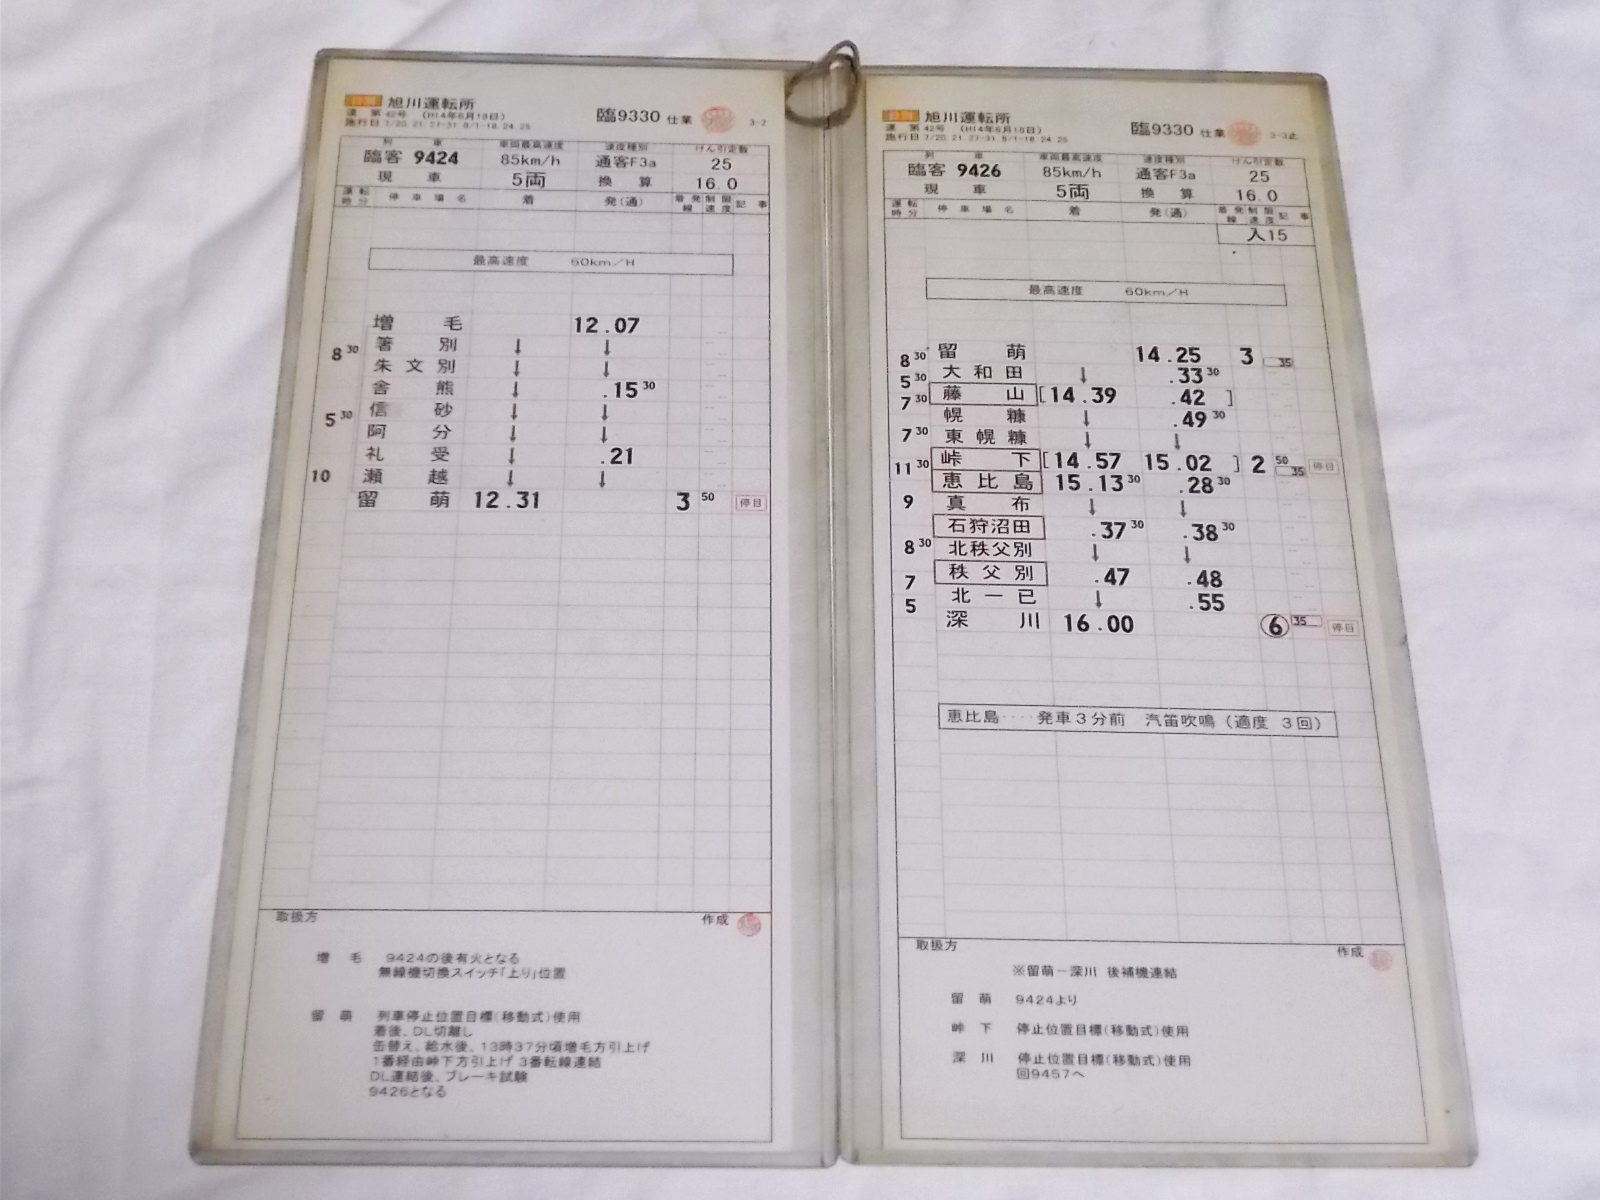 旭川運転所
達 第42号 (H14年6月18日)
臨9330 仕業
3-2
施行日 7/20.21.27-31 8/1-18.24.25
列 車
車両最高速度
速度種別
けん引定数
臨客 9424
85km/h
通客F3a
25
現 車
5両
換 算
16.0
運転時分
停車場名
着
発(通)
着発線
制限速度
記事
最高速度 60km/H
増毛 12.07
箸別 ↓ ↓
8 30
朱文別 ↓ ↓
舎熊 ↓ .15 30
信砂 ↓ ↓
5 30
阿分 ↓ ↓
礼受 ↓ .21
10
瀬越 ↓ ↓
留萌 12.31 3 50 停目
取扱方
作成
増毛 9424の後有火となる
無線機切換スイッチ「上り」位置
留萌 列車停止位置目標(移動式)使用
着後、DL切離し
缶替え、給水後、13時37分頃増毛方引上げ
1番経由峠下方引上げ 3番転線連結
DL連結後、ブレーキ試験
9426となる
旭川運転所
達 第42号 (H14年6月18日)
臨9330 仕業
3-3止
施行日 7/20.21.27-31 8/1-18.24.25
列 車
車両最高速度
速度種別
けん引定数
臨客 9426
85km/h
通客F3a
25
現 車
5両
換 算
16.0
運転時分
停車場名
着
発(通)
着発線
制限速度
記事
入15
最高速度 60km/H
留萌 14.25 3 35
8 30
大和田 ↓ .33 30
5 30
藤山 [14.39 .42 ]
7 30
幌糠 ↓ .49 30
東幌糠 ↓ ↓
7 30
峠下 [14.57 15.02 ] 2 50 35 停目
11 30
恵比島 15.13 30 .28 30
真布 ↓ ↓
9
石狩沼田 .37 30 .38 30
北秩父別 ↓ ↓
8 30
秩父別 .47 .48
7
北一已 ↓ .55
5
深川 16.00 ⑥ 35 停目
恵比島‥‥発車3分前 汽笛吹鳴(適度 3回)
取扱方
作成
※留萌－深川 後補機連結
留萌 9424より
峠下 停止位置目標(移動式)使用
深川 停止位置目標(移動式)使用
回9457へ